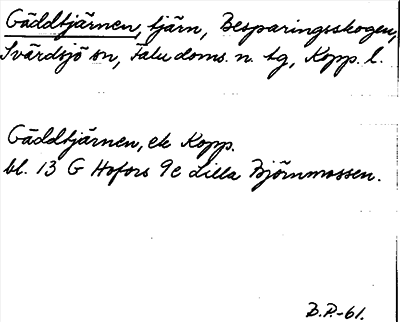 Gäddtjärnen, tjärn, Besparingsskogen,
Svärdsjö sn, Falu doms. n. tg, Kopp. l.
Gäddtjärnen, ek Kopp.
bl. 13 G Hofors 9e Lilla Björnmossen.
B.P.-61.